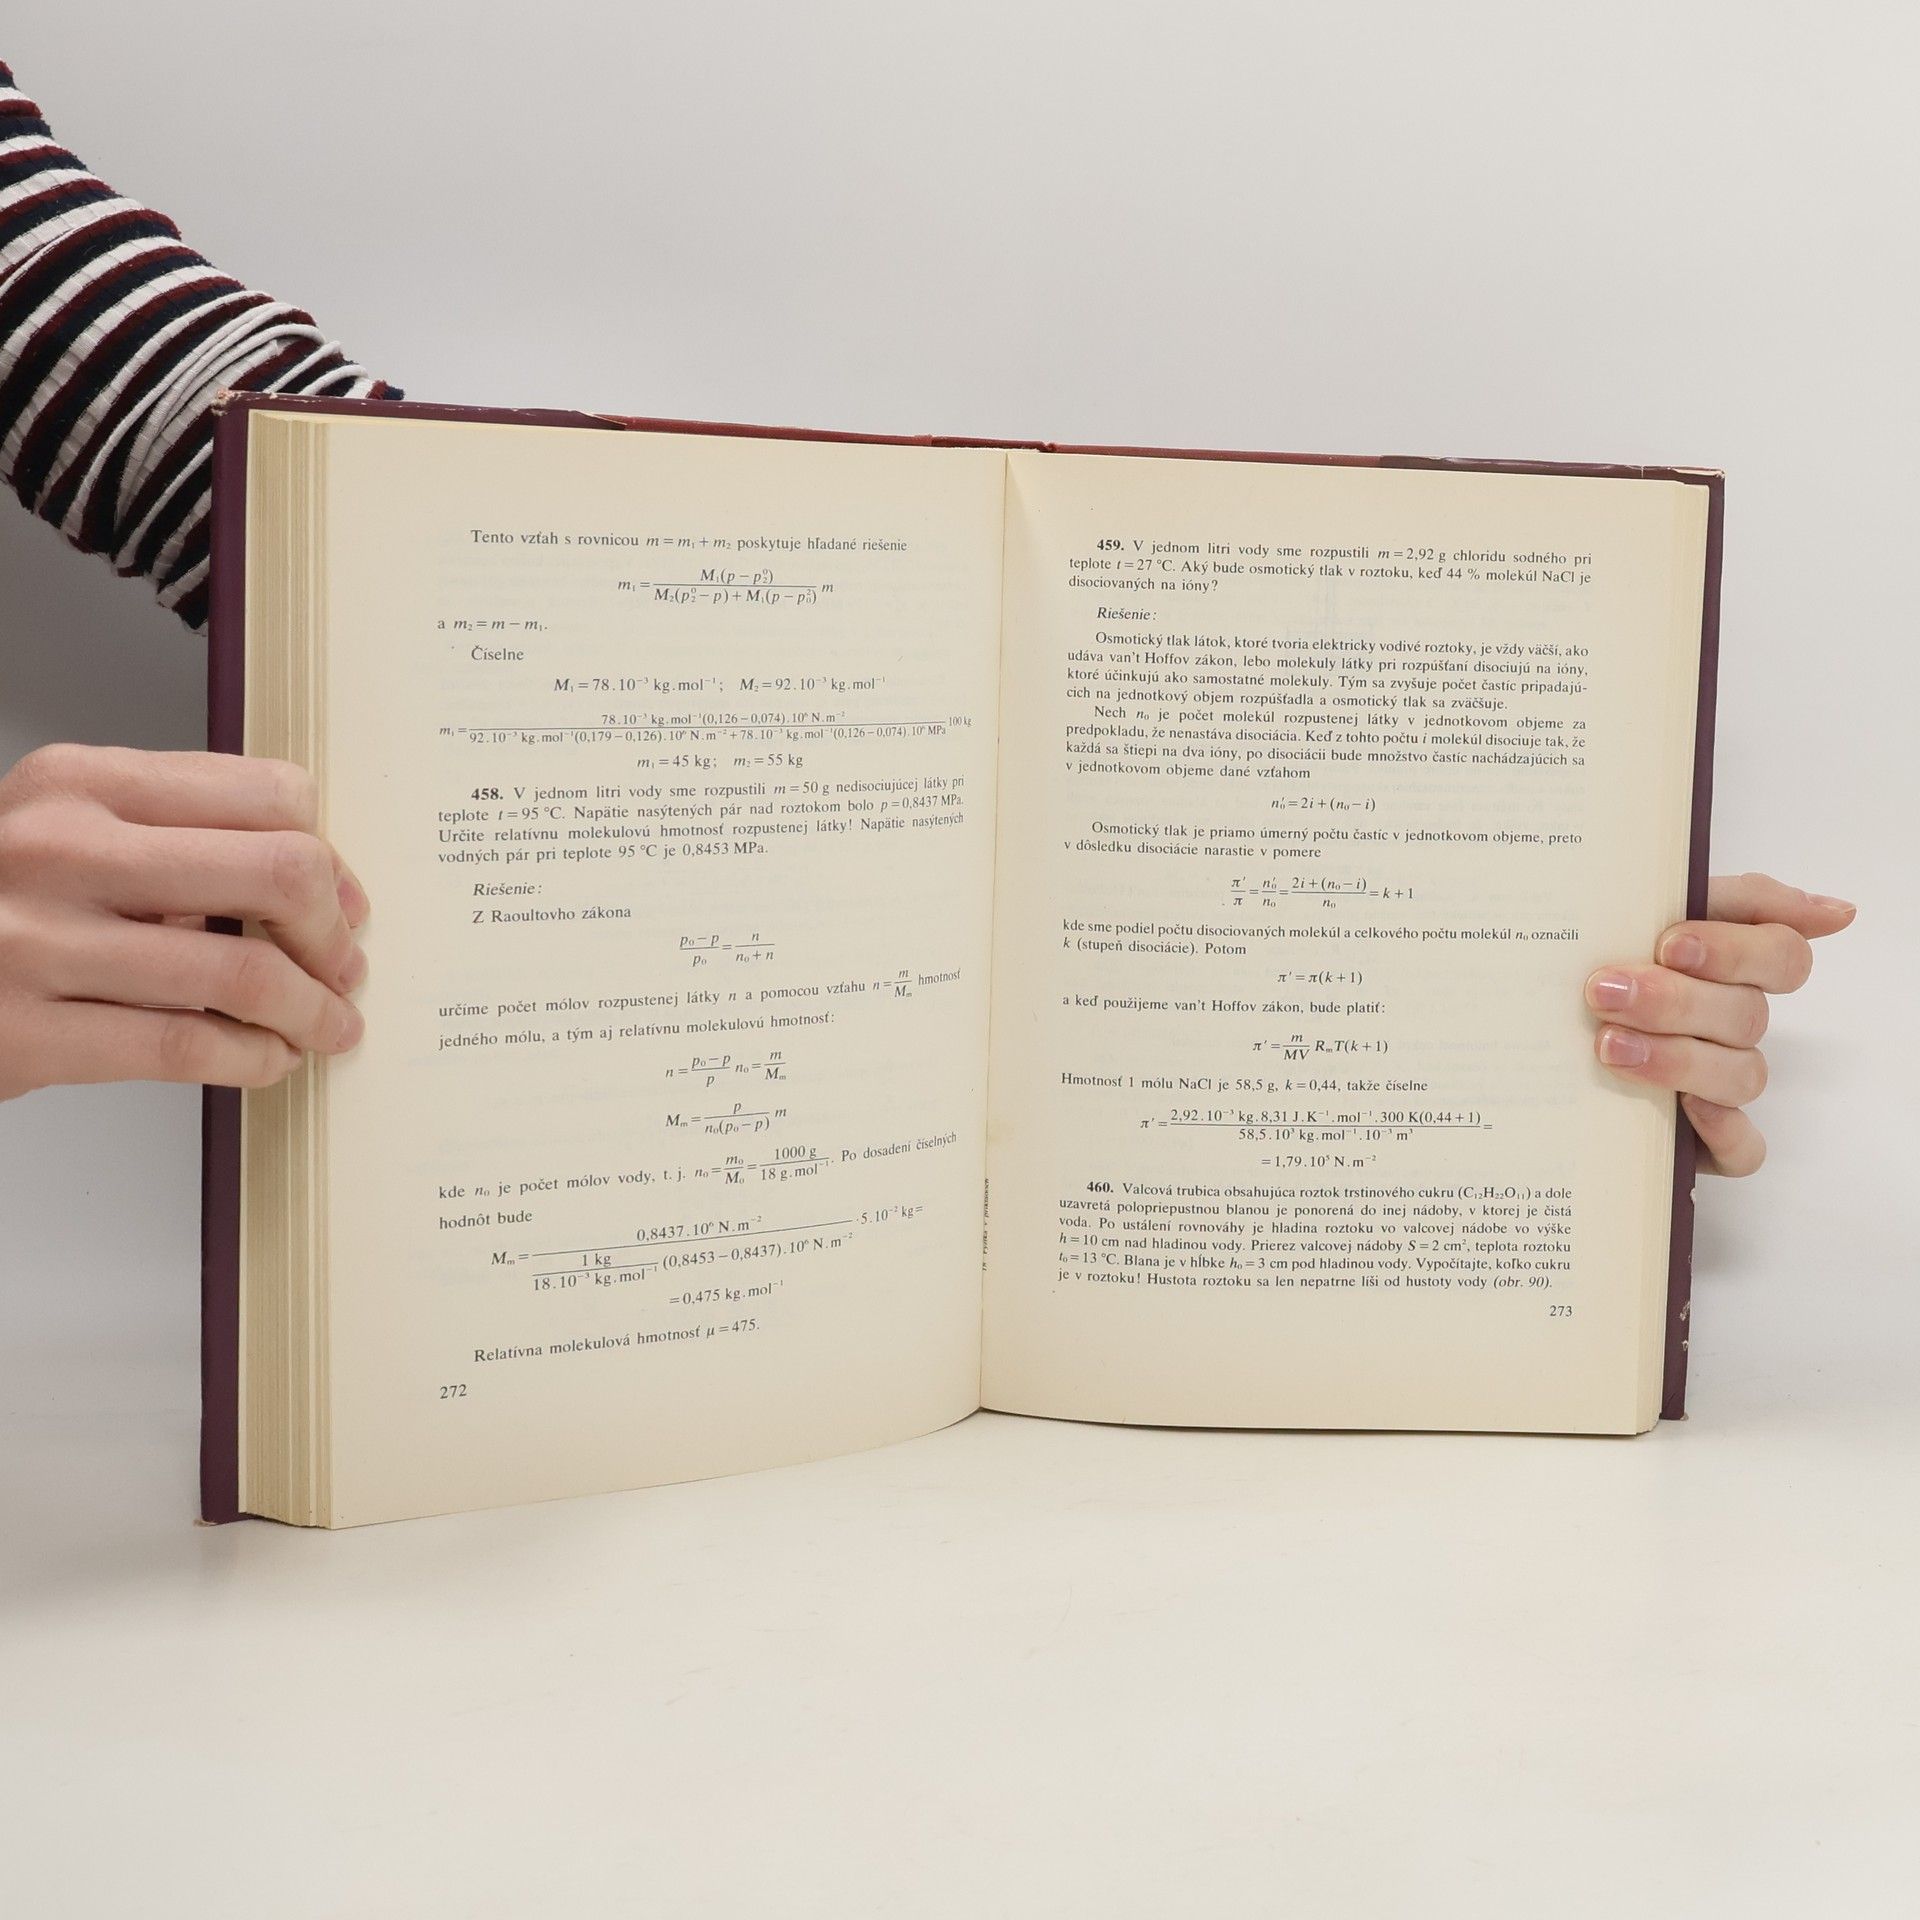 Tento vzťah s rovnicou m = m₁ + m₂ poskytuje hľadané riešenie
m₁ = M₁(p − p₂⁰) / M₂(p₂⁰ − p) + M₁(p − p₀²) m
a m₂ = m − m₁.
Číselne
M₁ = 78.10⁻³ kg.mol⁻¹; M₂ = 92.10⁻³ kg.mol⁻¹
m₁ = 78.10⁻³ kg.mol⁻¹(0,126 − 0,074).10⁶ N.m⁻² / 92.10⁻³ kg.mol⁻¹(0,179 − 0,126).10⁶ N.m⁻² + 78.10⁻³ kg.mol⁻¹(0,126 − 0,074).10⁶ MPa 100 kg
m₁ = 45 kg; m₂ = 55 kg
458. V jednom litri vody sme rozpustili m = 50 g nedisociujúcej látky pri
teplote t = 95 °C. Napätie nasýtených pár nad roztokom bolo p = 0,8437 MPa.
Určite relatívnu molekulovú hmotnosť rozpustenej látky! Napätie nasýtených
vodných pár pri teplote 95 °C je 0,8453 MPa.
Riešenie:
Z Raoultovho zákona
p₀ − p / p₀ = n / n₀ + n
určíme počet mólov rozpustenej látky n a pomocou vzťahu n = m / Mₘ hmotnosť
jedného mólu, a tým aj relatívnu molekulovú hmotnosť:
n = p₀ − p / p n₀ = m / Mₘ
Mₘ = p / n₀(p₀ − p) m
kde n₀ je počet mólov vody, t. j. n₀ = m₀ / M₀ = 1000 g / 18 g.mol⁻¹. Po dosadení číselných
hodnôt bude
Mₘ = 0,8437.10⁶ N.m⁻² / 1 kg / 18.10⁻³ kg.mol⁻¹ (0,8453 − 0,8437).10⁶ N.m⁻² .5.10⁻² kg =
= 0,475 kg.mol⁻¹
Relatívna molekulová hmotnosť μ = 475.
272
459. V jednom litri vody sme rozpustili m = 2,92 g chloridu sodného pri
teplote t = 27 °C. Aký bude osmotický tlak v roztoku, keď 44 % molekúl NaCl je
disociovaných na ióny?
Riešenie:
Osmotický tlak látok, ktoré tvoria elektricky vodivé roztoky, je vždy väčší, ako
udáva van't Hoffov zákon, lebo molekuly látky pri rozpúšťaní disociujú na ióny,
ktoré účinkujú ako samostatné molekuly. Tým sa zvyšuje počet častíc pripadajú-
cich na jednotkový objem rozpúšťadla a osmotický tlak sa zväčšuje.
Nech n₀ je počet molekúl rozpustenej látky v jednotkovom objeme za
predpokladu, že nenastáva disociácia. Keď z tohto počtu i molekúl disociuje tak, že
každá sa štiepi na dva ióny, po disociácii bude množstvo častíc nachádzajúcich sa
v jednotkovom objeme dané vzťahom
n₀′ = 2i + (n₀ − i)
Osmotický tlak je priamo úmerný počtu častíc v jednotkovom objeme, preto
v dôsledku disociácie narastie v pomere
π′ / π = n₀′ / n₀ = 2i + (n₀ − i) / n₀ = k + 1
kde sme podiel počtu disociovaných molekúl a celkového počtu molekúl n₀ označili
k (stupeň disociácie). Potom
π′ = π(k + 1)
a keď použijeme van't Hoffov zákon, bude platiť:
π′ = m / MV RₘT(k + 1)
Hmotnosť 1 mólu NaCl je 58,5 g, k = 0,44, takže číselne
π′ = 2,92.10⁻³ kg.8,31 J.K⁻¹.mol⁻¹.300 K(0,44 + 1) / 58,5.10³ kg.mol⁻¹.10⁻³ m³ =
= 1,79.10⁵ N.m⁻²
460. Valcová trubica obsahujúca roztok trstinového cukru (C₁₂H₂₂O₁₁) a dole
uzavretá polopriepustnou blanou je ponorená do inej nádoby, v ktorej je čistá
voda. Po ustálení rovnováhy je hladina roztoku vo valcovej nádobe vo výške
h = 10 cm nad hladinou vody. Prierez valcovej nádoby S = 2 cm², teplota roztoku
t₀ = 13 °C. Blana je v hĺbke h₀ = 3 cm pod hladinou vody. Vypočítajte, koľko cukru
je v roztoku! Hustota roztoku sa len nepatrne líši od hustoty vody (obr. 90).
273